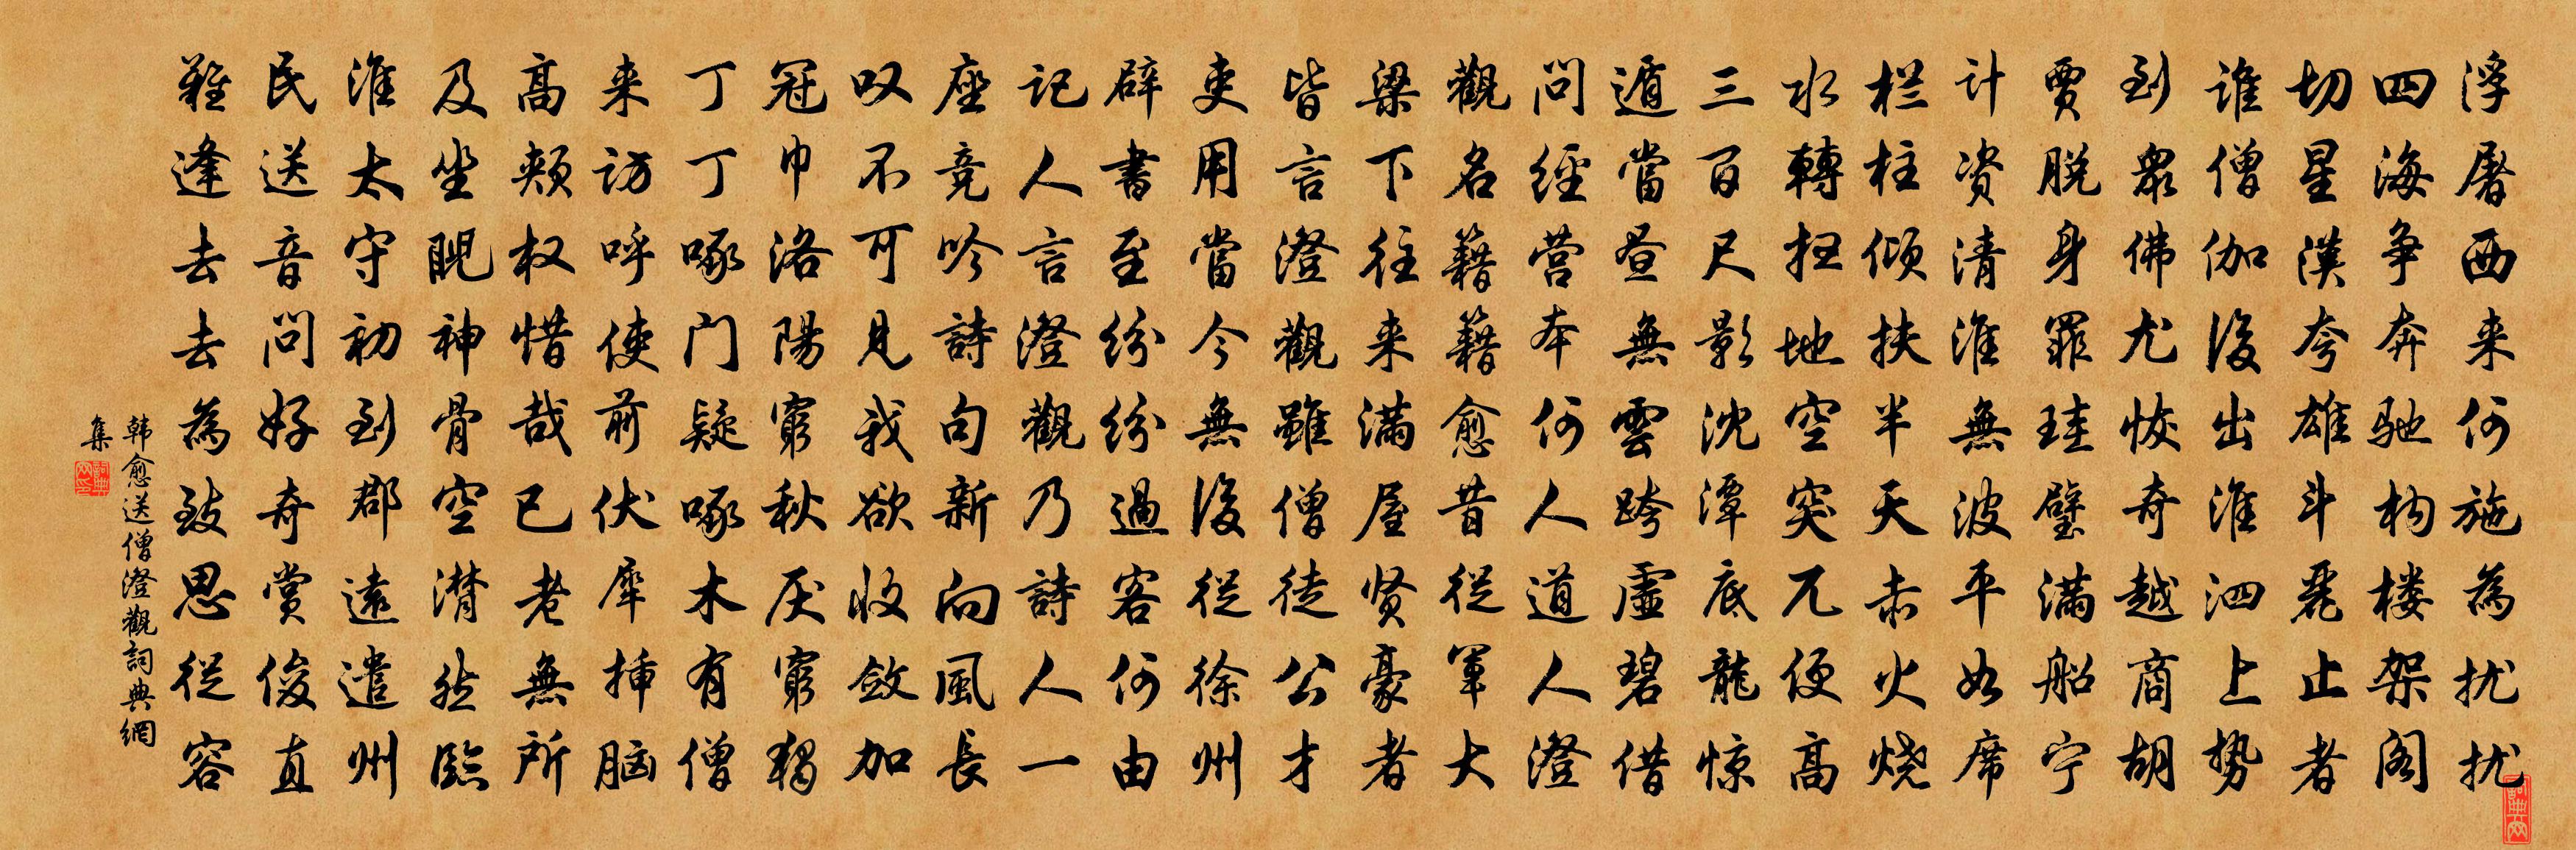 浮屠西来何施為扰扰
四海争奔驰构楼架阁
切星漢夸雄斗麗止者
谁僧伽後出淮泗上势
到衆佛尤恢奇越商胡
賈脱身罪珪璧满船宁
计资清淮無波平如席
栏柱倾扶半天赤火烧
水轉扫地空突兀便高
三百尺影沈潭底龍惊
遁當昼無雲跨虚碧借
問經营本何人道人澄
觀名籍籍愈昔從军大
梁下往来满屋贤豪者
皆言澄觀雖僧徒公才
吏用當今無後從徐州
辟書至纷纷過客何由
记人言澄觀乃詩人一
座竞吟詩句新向風長
叹不可見我欲收敛加
冠巾洛陽窮秋厌窮独
丁丁啄门疑啄木有僧
来访呼使前伏犀插脑
高颊权惜哉已老無所
及坐睨神骨空潸然臨
淮太守初到郡遠遣州
民送音問好奇赏俊直
難逢去去為致思從容
韩愈送僧澄觀詞典網
集